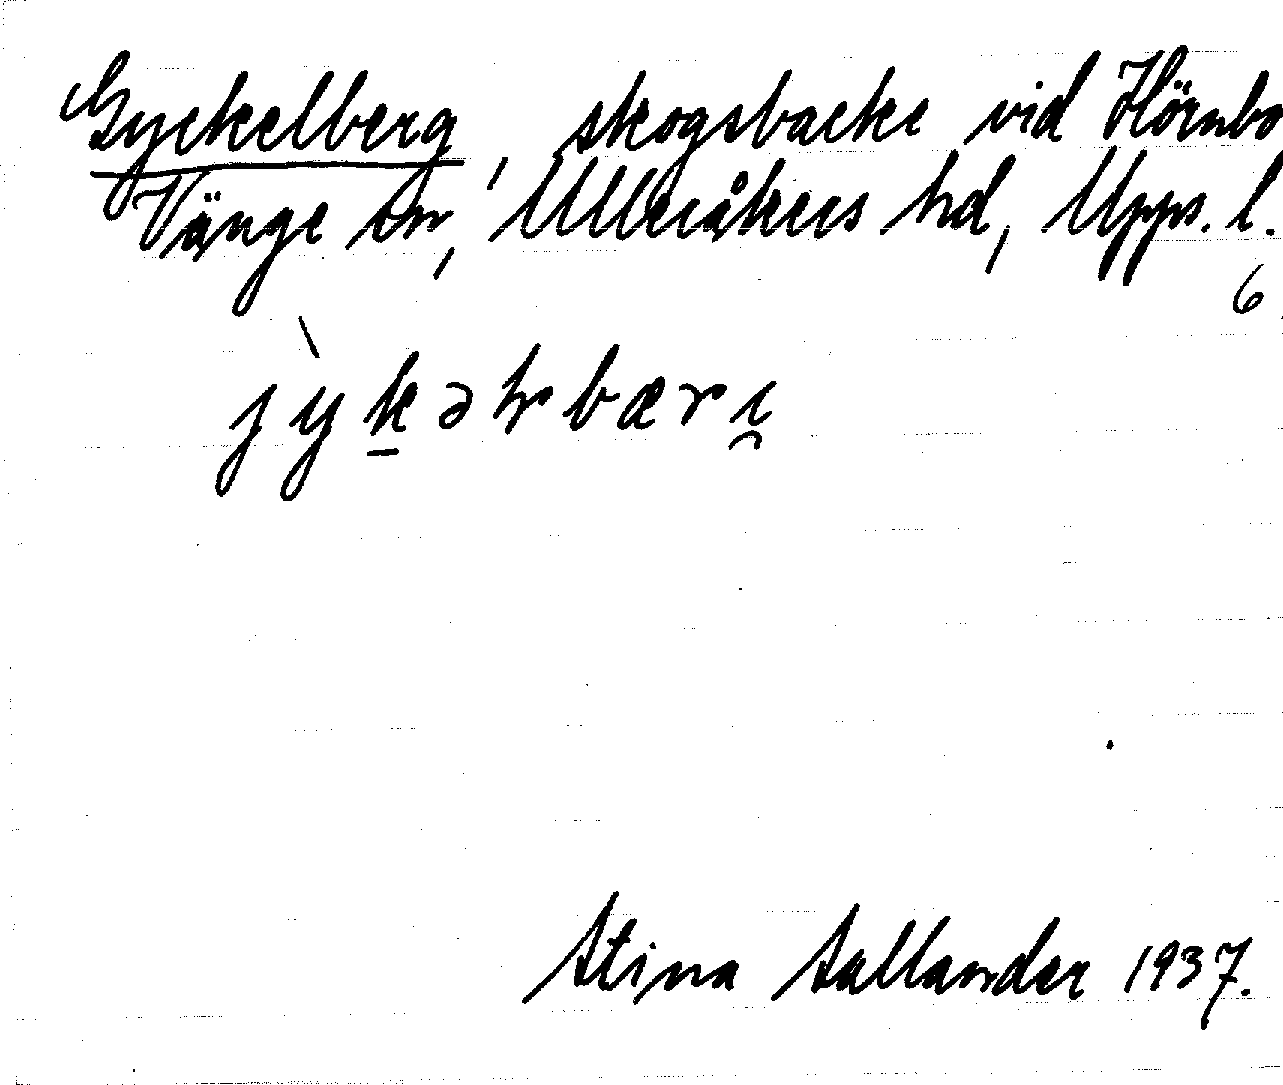 Gyckelberg, skogsbacke vid Hörnbo
Vänge sn, Ulleråkers hd, Upps. l.
6
Stina Sallander 1937.